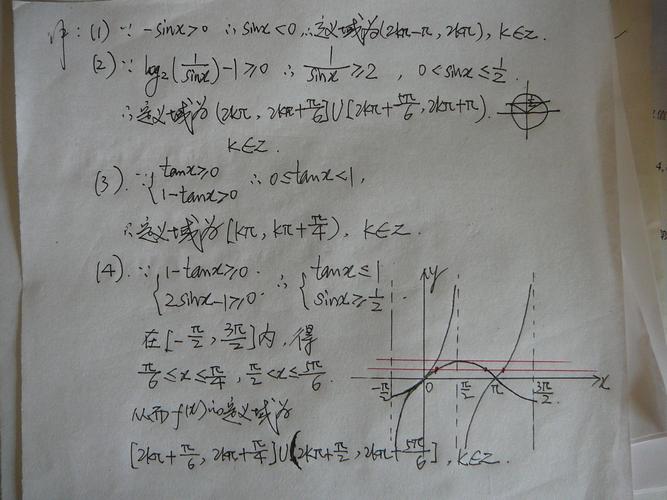 解：(1) ∵ -sinx>0 ∴ sinx<0, ∴定义域为(2kπ-π, 2kπ), k∈Z.
(2) ∵ log₂(1/sinx)-1≥0 ∴ 1/sinx≥2, 0<sinx≤1/2.
∴定义域为(2kπ, 2kπ+π/6]∪[2kπ+5π/6, 2kπ+π).
k∈Z.
(3). ∵{tanx≥0
1-tanx>0 ∴ 0≤tanx<1,
∴定义域为[kπ, kπ+π/4), k∈Z.
(4). ∵{1-tanx≥0.
2sinx-1≥0. ∴{tanx≤1
sinx≥1/2.
在[-π/2, 3π/2]内, 得
π/6≤x≤π/4, π/2<x≤5π/6.
从而f(x)的定义域为
[2kπ+π/6, 2kπ+π/4]∪(2kπ+π/2, 2kπ+5π/6], k∈Z.
y
-π/2 0 π/2 π 3π/2 x